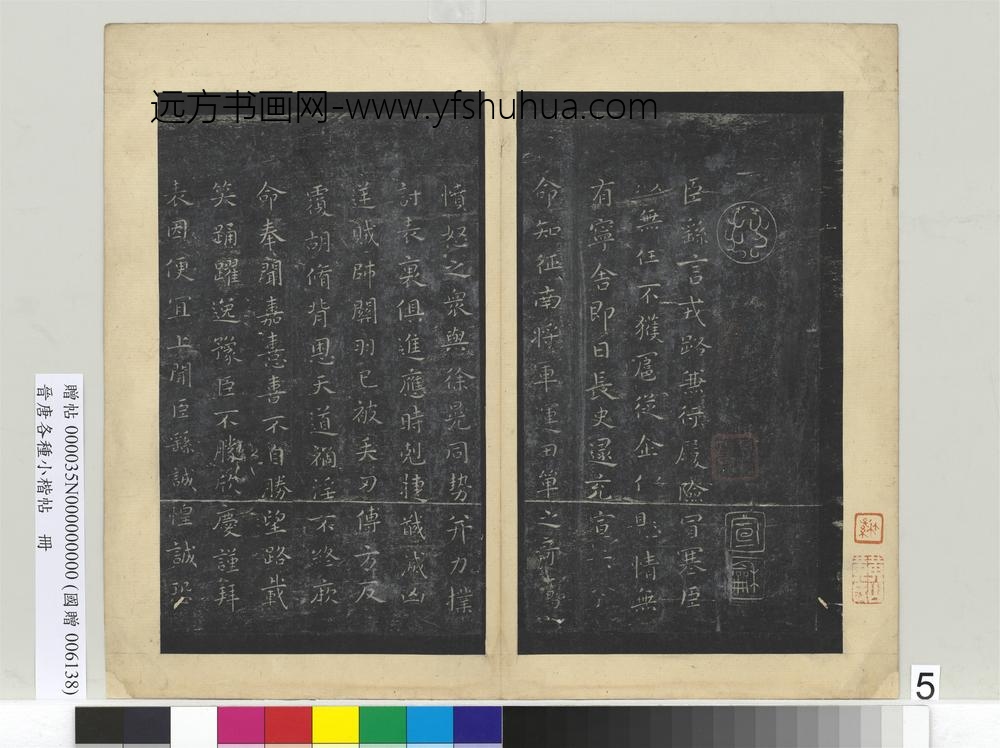 远方书画网-www.yfshuhua.com
宣和
臣繇言戎路兼行履險冒寒臣
以無任不獲扈從企佇懸情無
有寧舍即日長史逮充宣示
命知征南將軍運田單之奇厲
憤怒之衆與徐晃同勢并力撲
討表裏俱進應時剋捷馘滅凶
逆賊帥關羽已被矢刃傅方反
覆胡脩背恩天道禍淫不終厥
命奉聞嘉憙喜不自勝望路載
笑踊躍逸豫臣不勝欣慶謹拜
表因便宜上聞臣繇誠惶誠恐
贈帖 000035N000000000 (國贈 006138)
晉唐各種小楷帖 冊
5